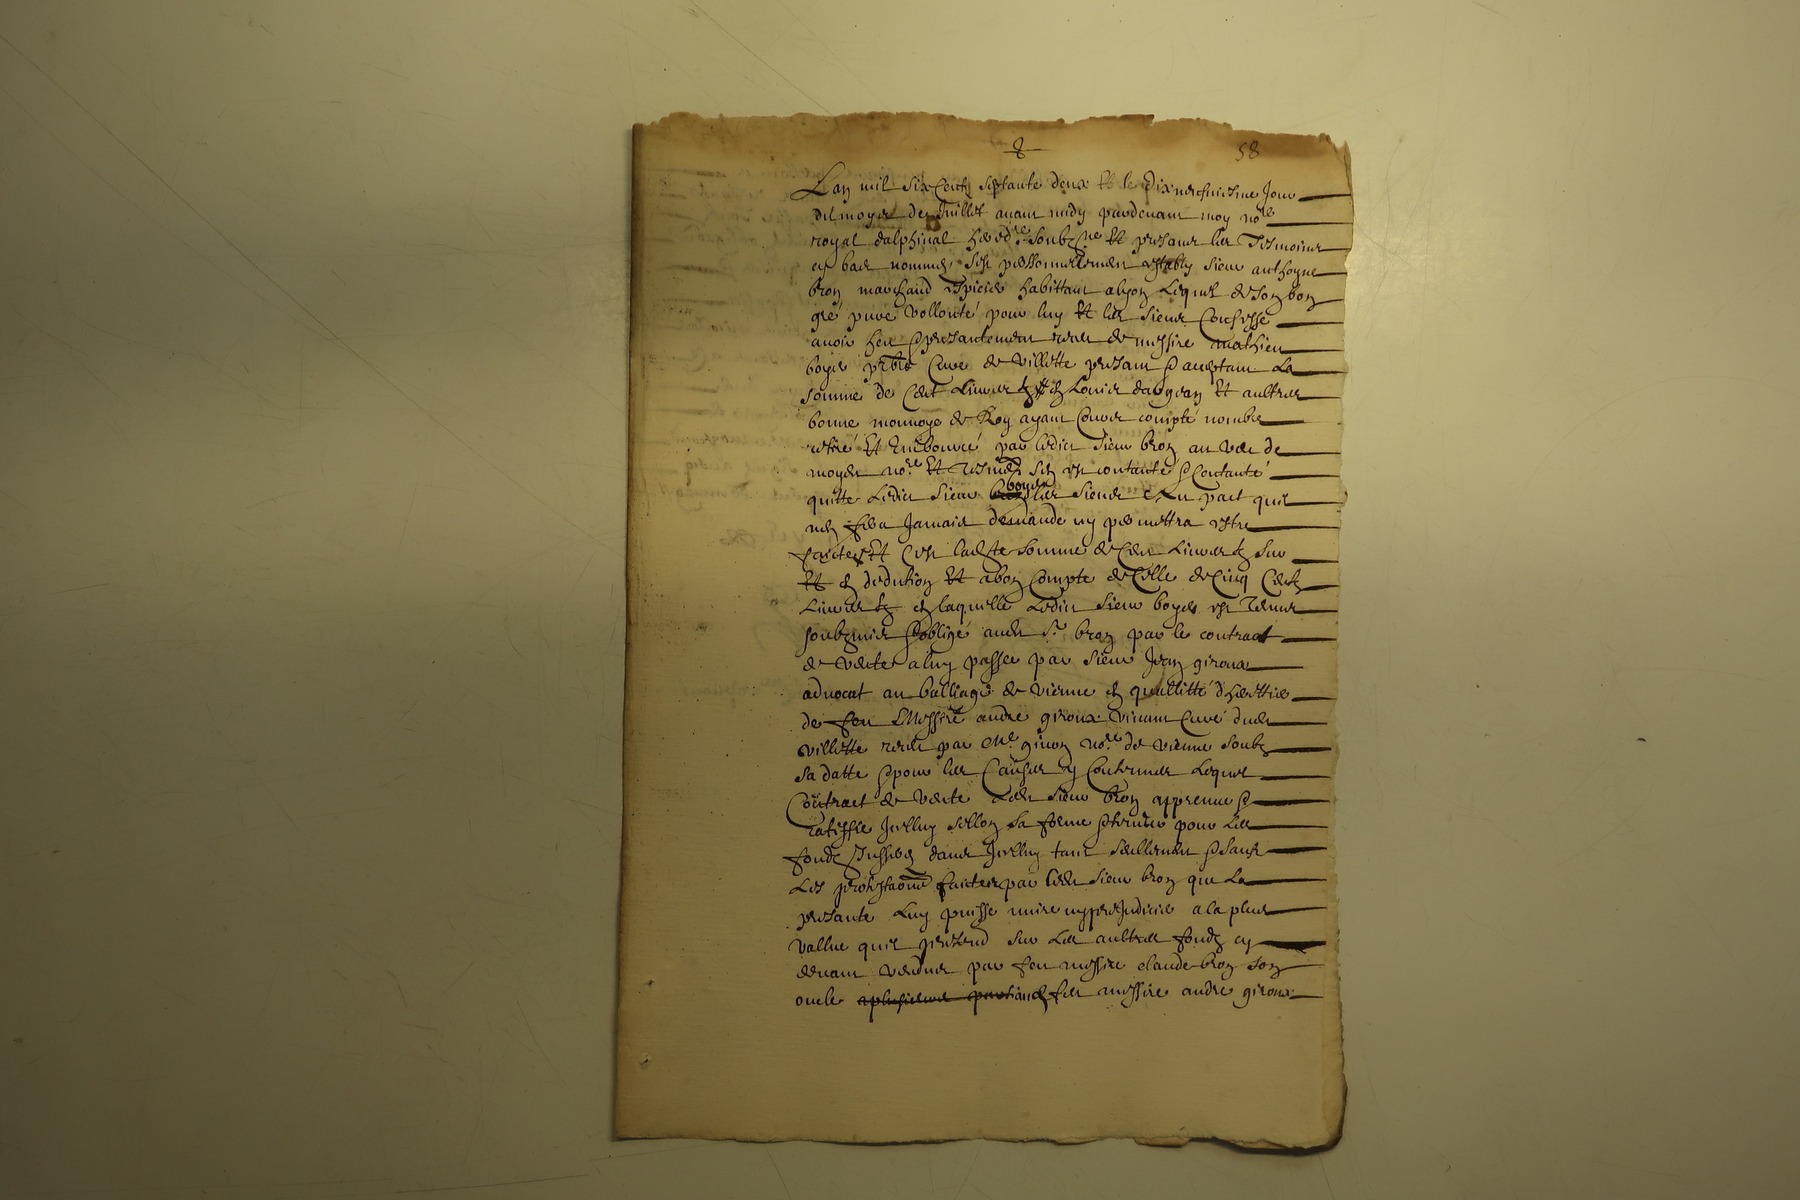 58
Lan mil six Centz septante deux Et le Dixneufuiesme Jour
du moys de Juillet auant midy pardeuant moy nore
royal dalphinal hered.re soubzne Et presans les Tesmoins
cy bas nommes sest personnellement estably sieur anthoyne
bron marchand espicier habittant alyon Lequel de son bon
gré pure vollonté pour luy Et les siens Confesse
auoir heu presantement receu de messire mathieu
boyer pbre Cure de Villette presant & aceptant La
somme de Cent Liures en Louis dargean Et aultres
bonne monnoye de Roy ayant Cours compté nombre
retiré Et Emboursé par ledict sieur bron au veu de
moyd nore Et Tesmoings sen est contanté & Contanté
quitte Ledict sieur boyer les siens En pact quil
nen fera Jamais demande ny permettra estre
faictes Et Cest ladte somme de Cent Liures sur
Et en dedution Et abon Compte de Celle de Cinq Centz
Liures en laquelle Ledict sieur boyer est Tenu
soubzmis & obligé audt Sr bron par le contract
de vente a luy passee par sieur Jean giroux
aduocat au balliage de Vienne en quallitté dheritier
de feu Messire andre giroux viuant Cure dudt
villette receu par Me giron nore de vienne soubz
sa datte & pour les Causes y Contenues Lequel
Contract de vente Ledt sieur bron appreuue &
ratiffie Jcelluy sellon sa forme & teneur pour Les
fondz dans Jcelluy tant seullement & sauf
Les protestaons faictes par ledt sieur bron que La
presante Luy puisse nuire ny preJudicier a la plus
vallue quil pretend sur Les aultres fondz cy
deuant vendus par feu messire claude bron son
oncle a plusieurs feu messire andre giroux